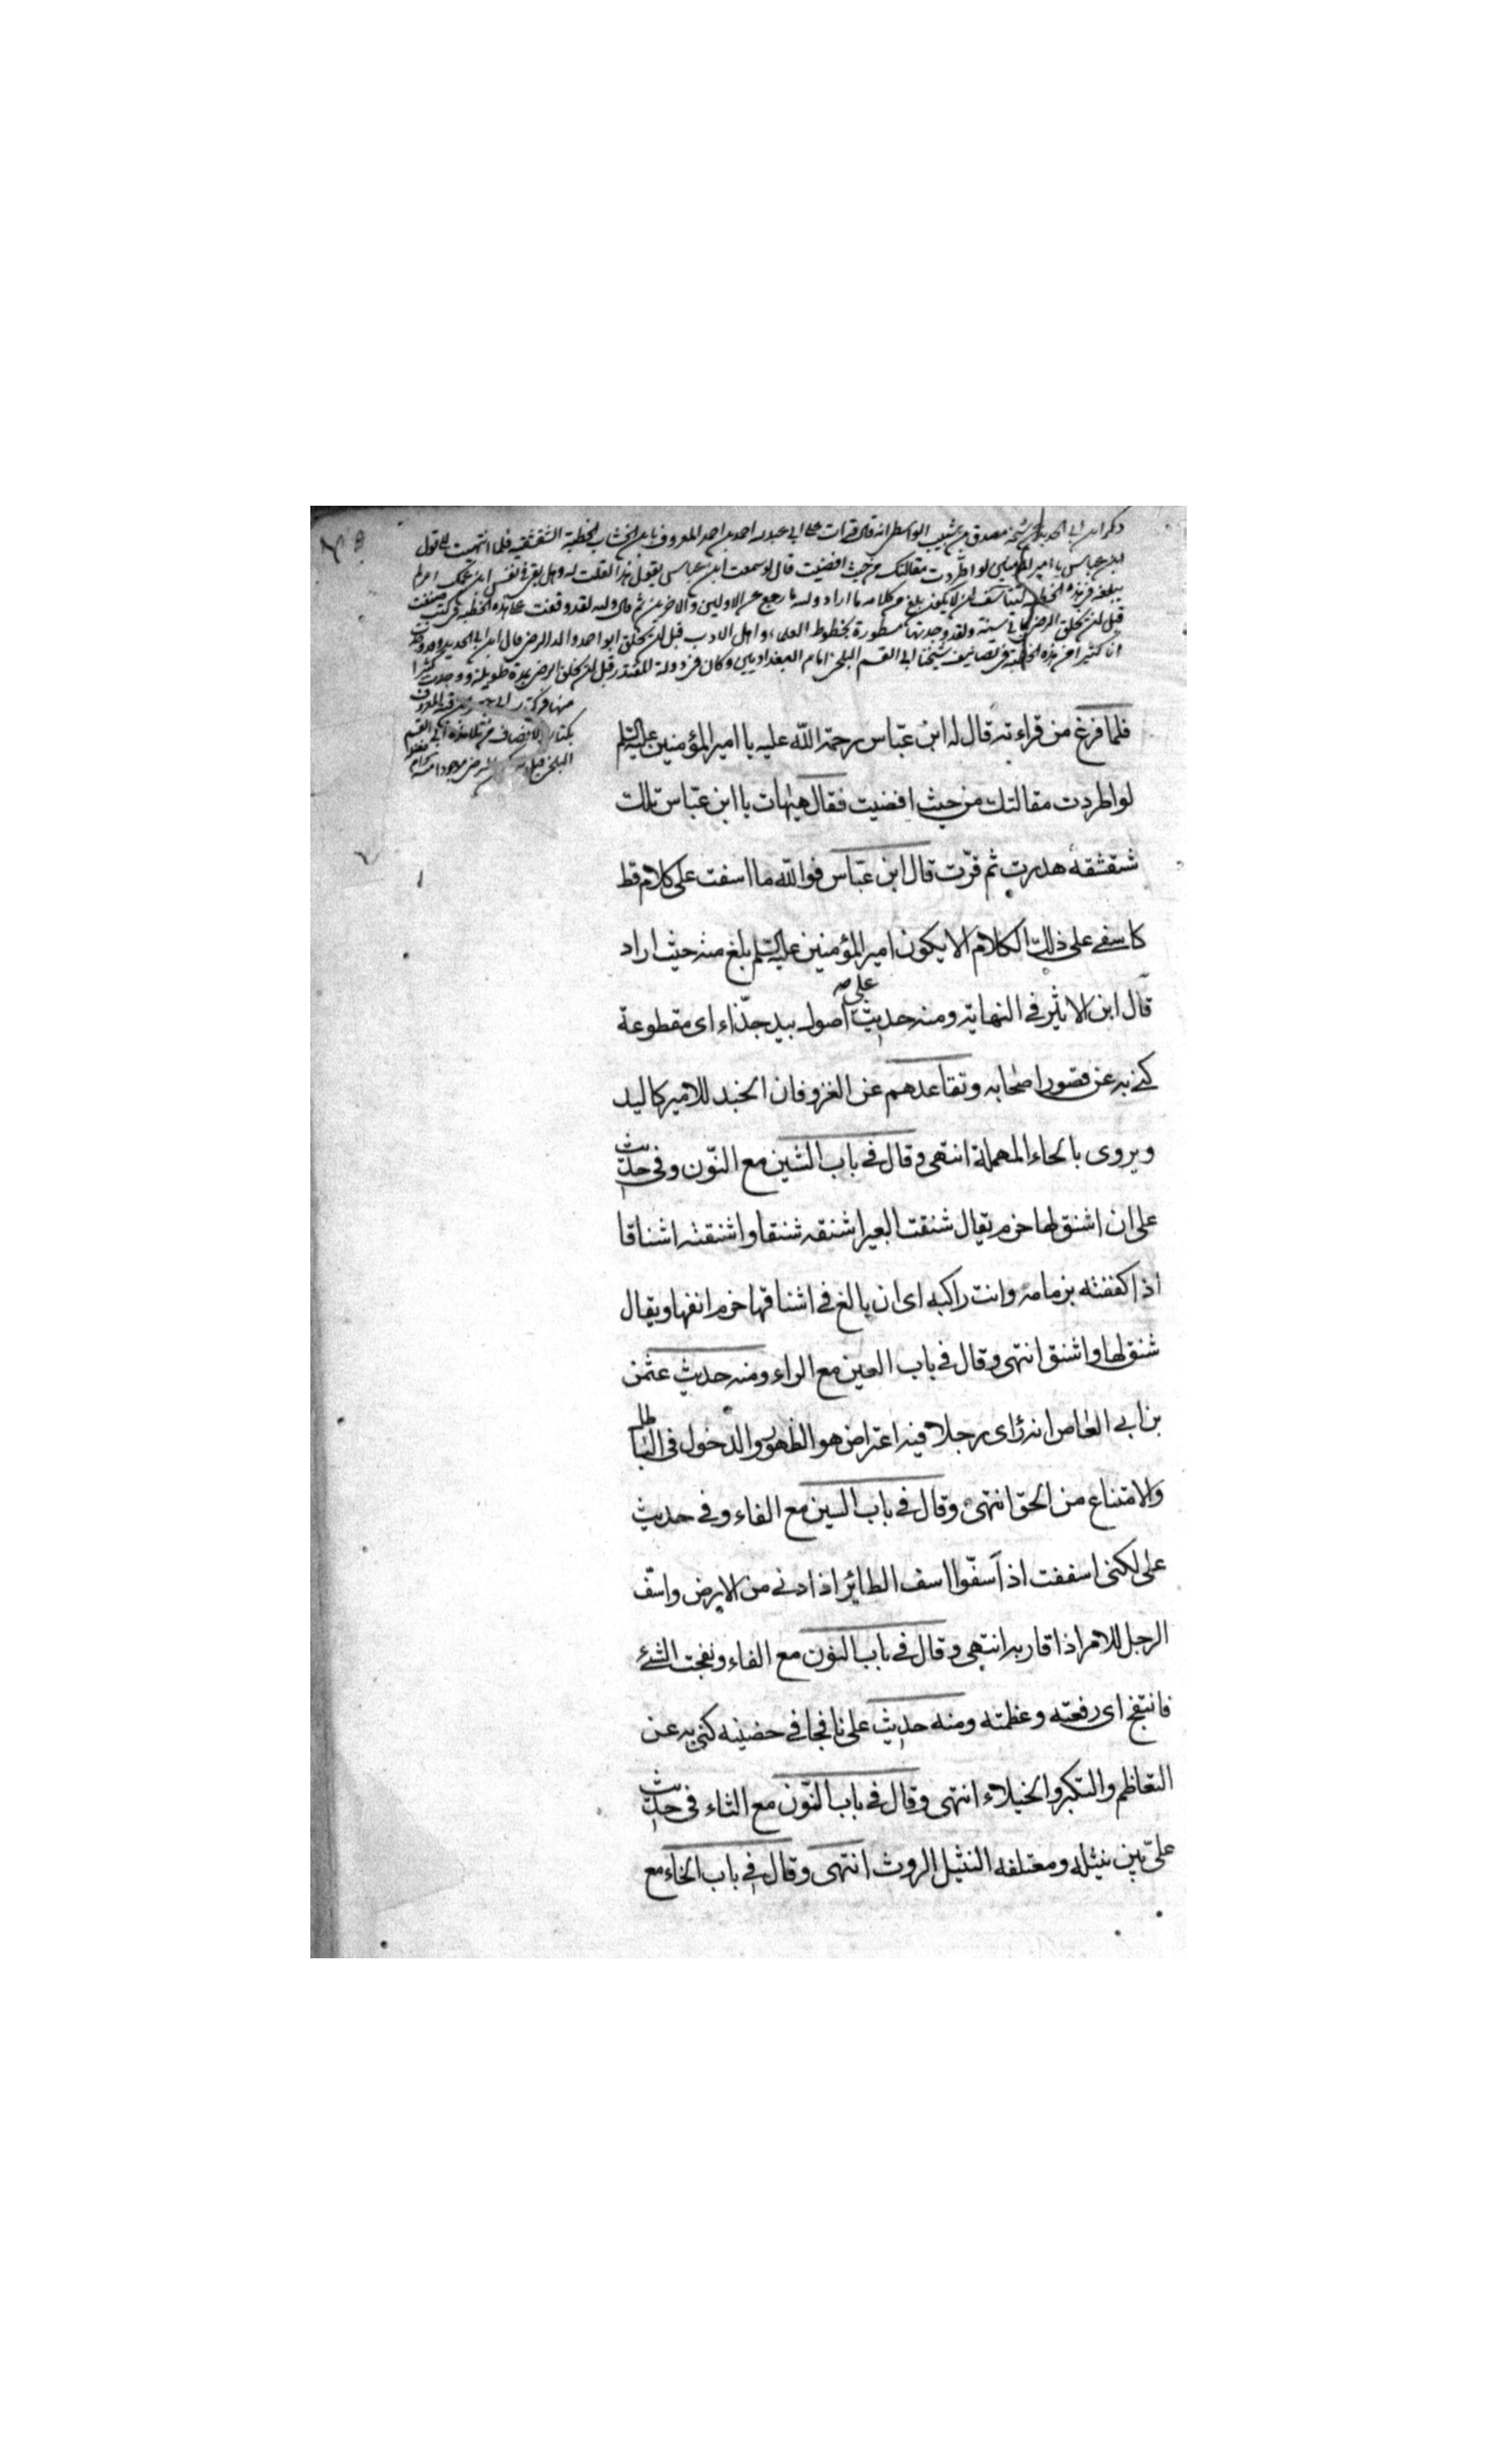 ذكر ابن ابي الحديد شيخه مصدق بن شبيب الواسطي انه قال قرات على ابي عبدالله احمد بن احمد المعروف بابن الخشاب الخطبة الشقشقية فلما انتهيت الى قول
ابن عباس يا امير المؤمنين لو اطردت مقالتك من حيث افضيت قال لو سمعت ابن عباس يقول هذا لقلت له وهل بقي في نفس ابن عمك امر لم
يبلغه في هذه الخطبة لتتأسف ان لا يكون بلغ من كلامه ما اراد والله ما رجع عن الاولين والاخرين ثم قال والله لقد وقفت على هذه الخطبة في كتب صنفت
قبل ان يخلق الرضي بمائتي سنة ولقد وجدتها مسطورة بخطوط العلماء واهل الادب قبل ان يخلق ابو احمد والد الرضي قال ابن ابي الحديد وقد وجدت
انا كثيرا من هذه الخطبة في تصانيف شيخنا ابي القسم البلخي امام البغداديين وكان في دولة المقتدر قبل ان يخلق الرضي بمدة طويلة ووجدت كثيرا
منها في كتاب ابي جعفر بن قبة المعروف
بكتاب الانصاف من تلامذة ابي القسم
البلخي قبل الرضي موجودا
فلما فرغ من قراءته قال له ابن عباس رحمة الله عليه يا امير المؤمنين عليه السلم
لو اطردت مقالتك من حيث افضيت فقال هيهات يا ابن عباس تلك
شقشقة هدرت ثم قرّت قال ابن عباس فوالله ما اسفت على كلام قط
كاسفي على ذلك الكلام الا يكون امير المؤمنين عليه السلم بلغ منه حيث اراد
قال ابن الاثير في النهاية ومنه حديث علي اصول بيد جذّاء اى مقطوعة
كنى به عن قصور اصحابه وتقاعدهم عن الغزو فان الجند للامير كاليد
ويروى بالحاء المهملة انتهى وقال في باب الشين مع النّون وفي حديث
على ان اشنق لها خرم يقال شنقت البعير اشنقه شنقا واشنقته اشناقا
اذا كففته بزمامه وانت راكبه اى ان بالغ في اشناقها خرم انفها ويقال
شنق لها واشنق انتهى وقال في باب العين مع الراء ومنه حديث عثمن
بن ابي العاص انه رأى رجلا فيه اعتراض هو الظهور والدخول في الباطل
والامتناع من الحق انتهى وقال في باب السين مع الفاء وفي حديث
على لكنى اسففت اذ اسفّوا اسف الطائر اذا دنى من الارض واسفّ
الرجل للامر اذا قاربه انتهى وقال في باب النون مع الفاء ونفجت الشئ
فانتفج اى رفعته وعظمته ومنه حديث على نافجا في حضنيه كنى به عن
التعاظم والتكبر والخيلاء انتهى وقال في باب النّون مع الثاء في حديث
علىّ بين نثيله ومعتلفه النثيل الروث انتهى وقال في باب الخاء مع